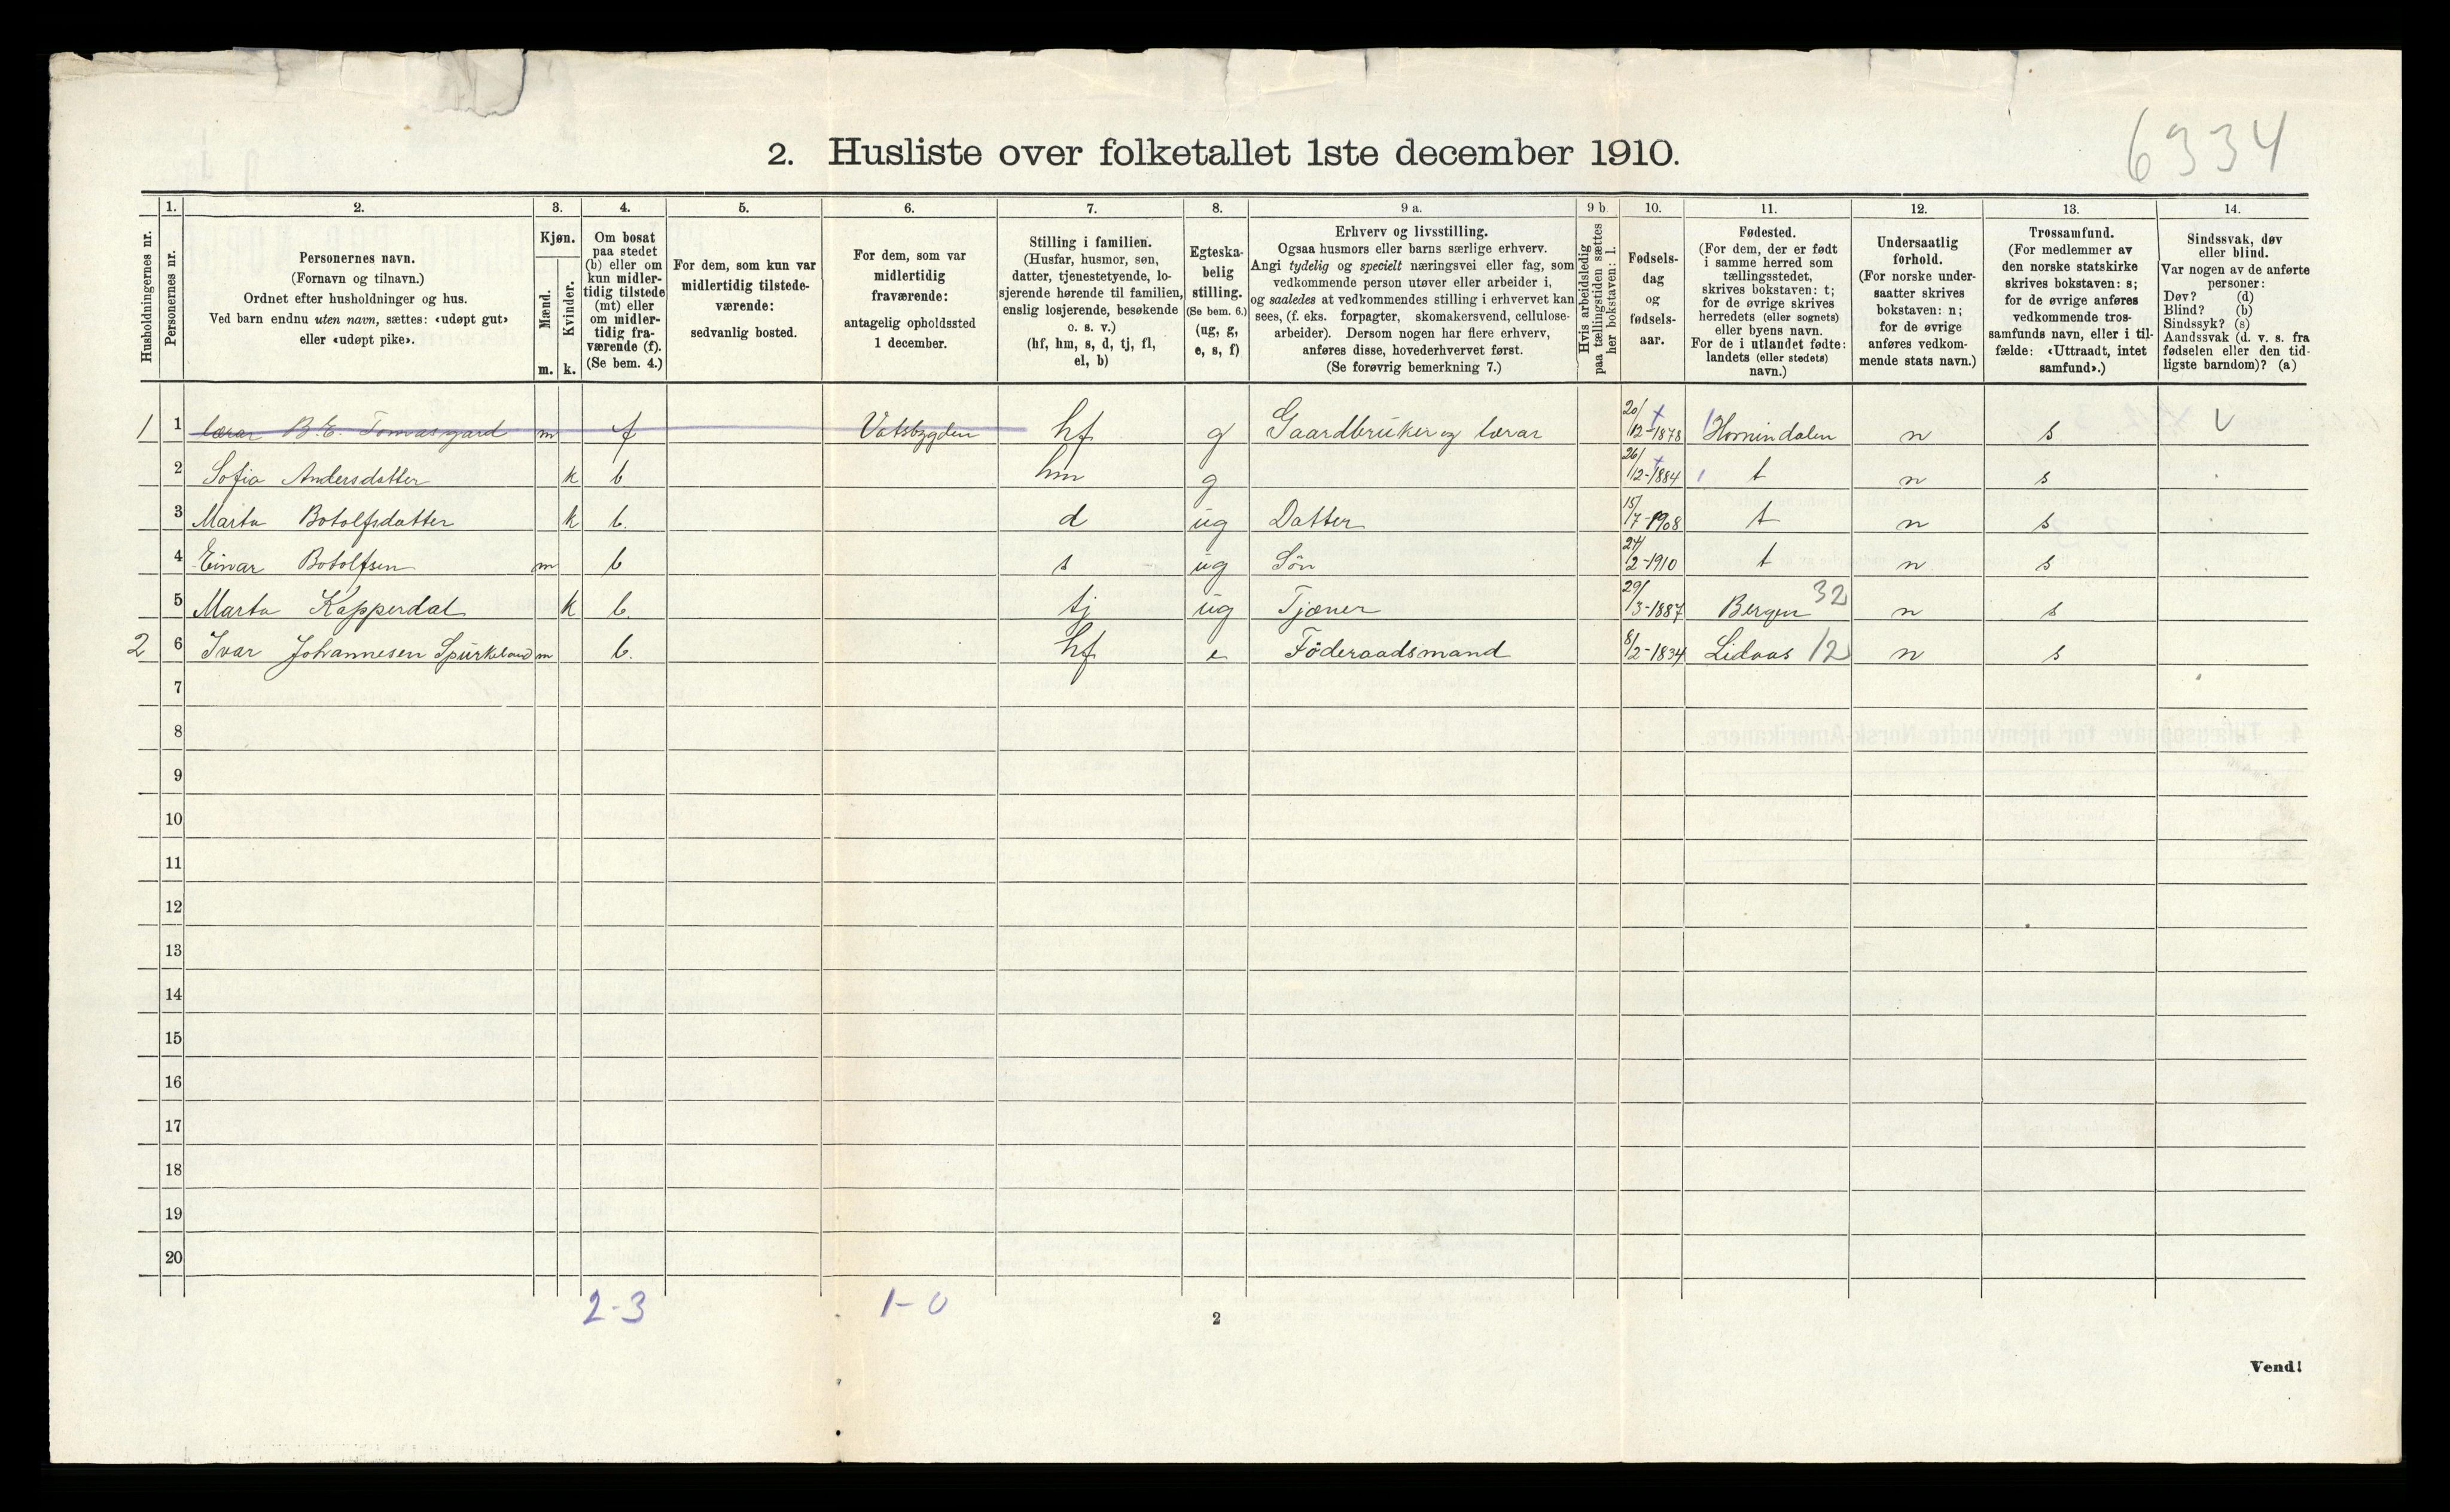 6334
2. Husliste over folketallet 1ste december 1910.
Husholdningernes nr.
1.
Personernes nr.
2.
Personernes navn.
(Fornavn og tilnavn.)
Ordnet efter husholdninger og hus.
Ved barn endnu uten navn, sættes: «udøpt gut»
eller «udøpt pike».
3.
Kjøn.
Mænd.
Kvinder.
m. k.
4.
Om bosat
paa stedet
(b) eller om
kun midler-
tidig tilstede
(mt) eller
om midler-
tidig fra-
værende (f).
(Se bem. 4.)
5.
For dem, som kun var
midlertidig tilstede-
værende:
sedvanlig bosted.
6.
For dem, som var
midlertidig
fraværende:
antagelig opholdssted
1 december.
7.
Stilling i familien.
(Husfar, husmor, søn,
datter, tjenestetyende, lo-
sjerende hørende til familien,
enslig losjerende, besøkende
o. s. v.)
(hf, hm, s, d, tj, fl,
el, b)
8.
Egteska-
belig
stilling.
(Se bem. 6.)
(ug, g,
e, s, f)
9 a.
Erhverv og livsstilling.
Ogsaa husmors eller barns særlige erhverv.
Angi tydelig og specielt næringsvei eller fag, som
vedkommende person utøver eller arbeider i,
og saaledes at vedkommendes stilling i erhvervet kan
sees, (f. eks. forpagter, skomakersvend, cellulose-
arbeider). Dersom nogen har flere erhverv,
anføres disse, hovederhvervet først.
(Se forøvrig bemerkning 7.)
9 b
Hvis arbeidsledig
paa tællingstiden sættes
her bokstaven: l.
10.
Fødsels-
dag
og
fødsels-
aar.
11.
Fødested.
(For dem, der er født
i samme herred som
tællingsstedet,
skrives bokstaven: t;
for de øvrige skrives
herredets (eller sognets)
eller byens navn.
For de i utlandet fødte:
landets (eller stedets)
navn.)
12.
Undersaatlig
forhold.
(For norske under-
saatter skrives
bokstaven: n;
for de øvrige
anføres vedkom-
mende stats navn.)
13.
Trossamfund.
(For medlemmer av
den norske statskirke
skrives bokstaven: s;
for de øvrige anføres
vedkommende tros-
samfunds navn, eller i til-
fælde: «Uttraadt, intet
samfund».)
14.
Sindssvak, døv
eller blind.
Var nogen av de anførte
personer:
Døv? (d)
Blind? (b)
Sindssyk? (s)
Aandssvak (d. v. s. fra
fødselen eller den tid-
ligste barndom)? (a)
1 1 lærar B. E. Tomasgard m f Votsbygden hf g Gaardbruker og lærar 20/12-1878 Hornindalen n s
2 Sofia Andersdatter k b hm g 26/12-1884 t n s
3 Marta Botolfsdatter k b. d ug Datter 15/7-1908 t n s
4 Einar Botolfsen m b s ug Sön 24/2-1910 t n s
5 Marta Kapperdal k b. tj ug Tjæner 29/3-1887 Bergen 32 n s
2 6 Ivar Johannesen Spurkeland m b. hf e Föderaadsmand 8/2-1834 Lidaas 12 n s
7
8
9
10
11
12
13
14
15
16
17
18
19
20
2-3 1-0
2
Vend!